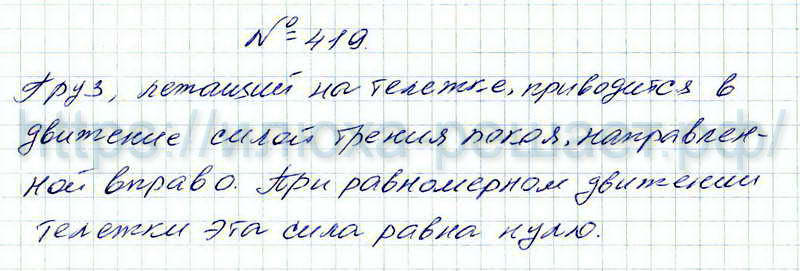 № 419.
Груз, лежащий на тележке, приводится в
движение силой трения покоя, направлен-
ной вправо. При равномерном движении
тележки эта сила равна нулю.